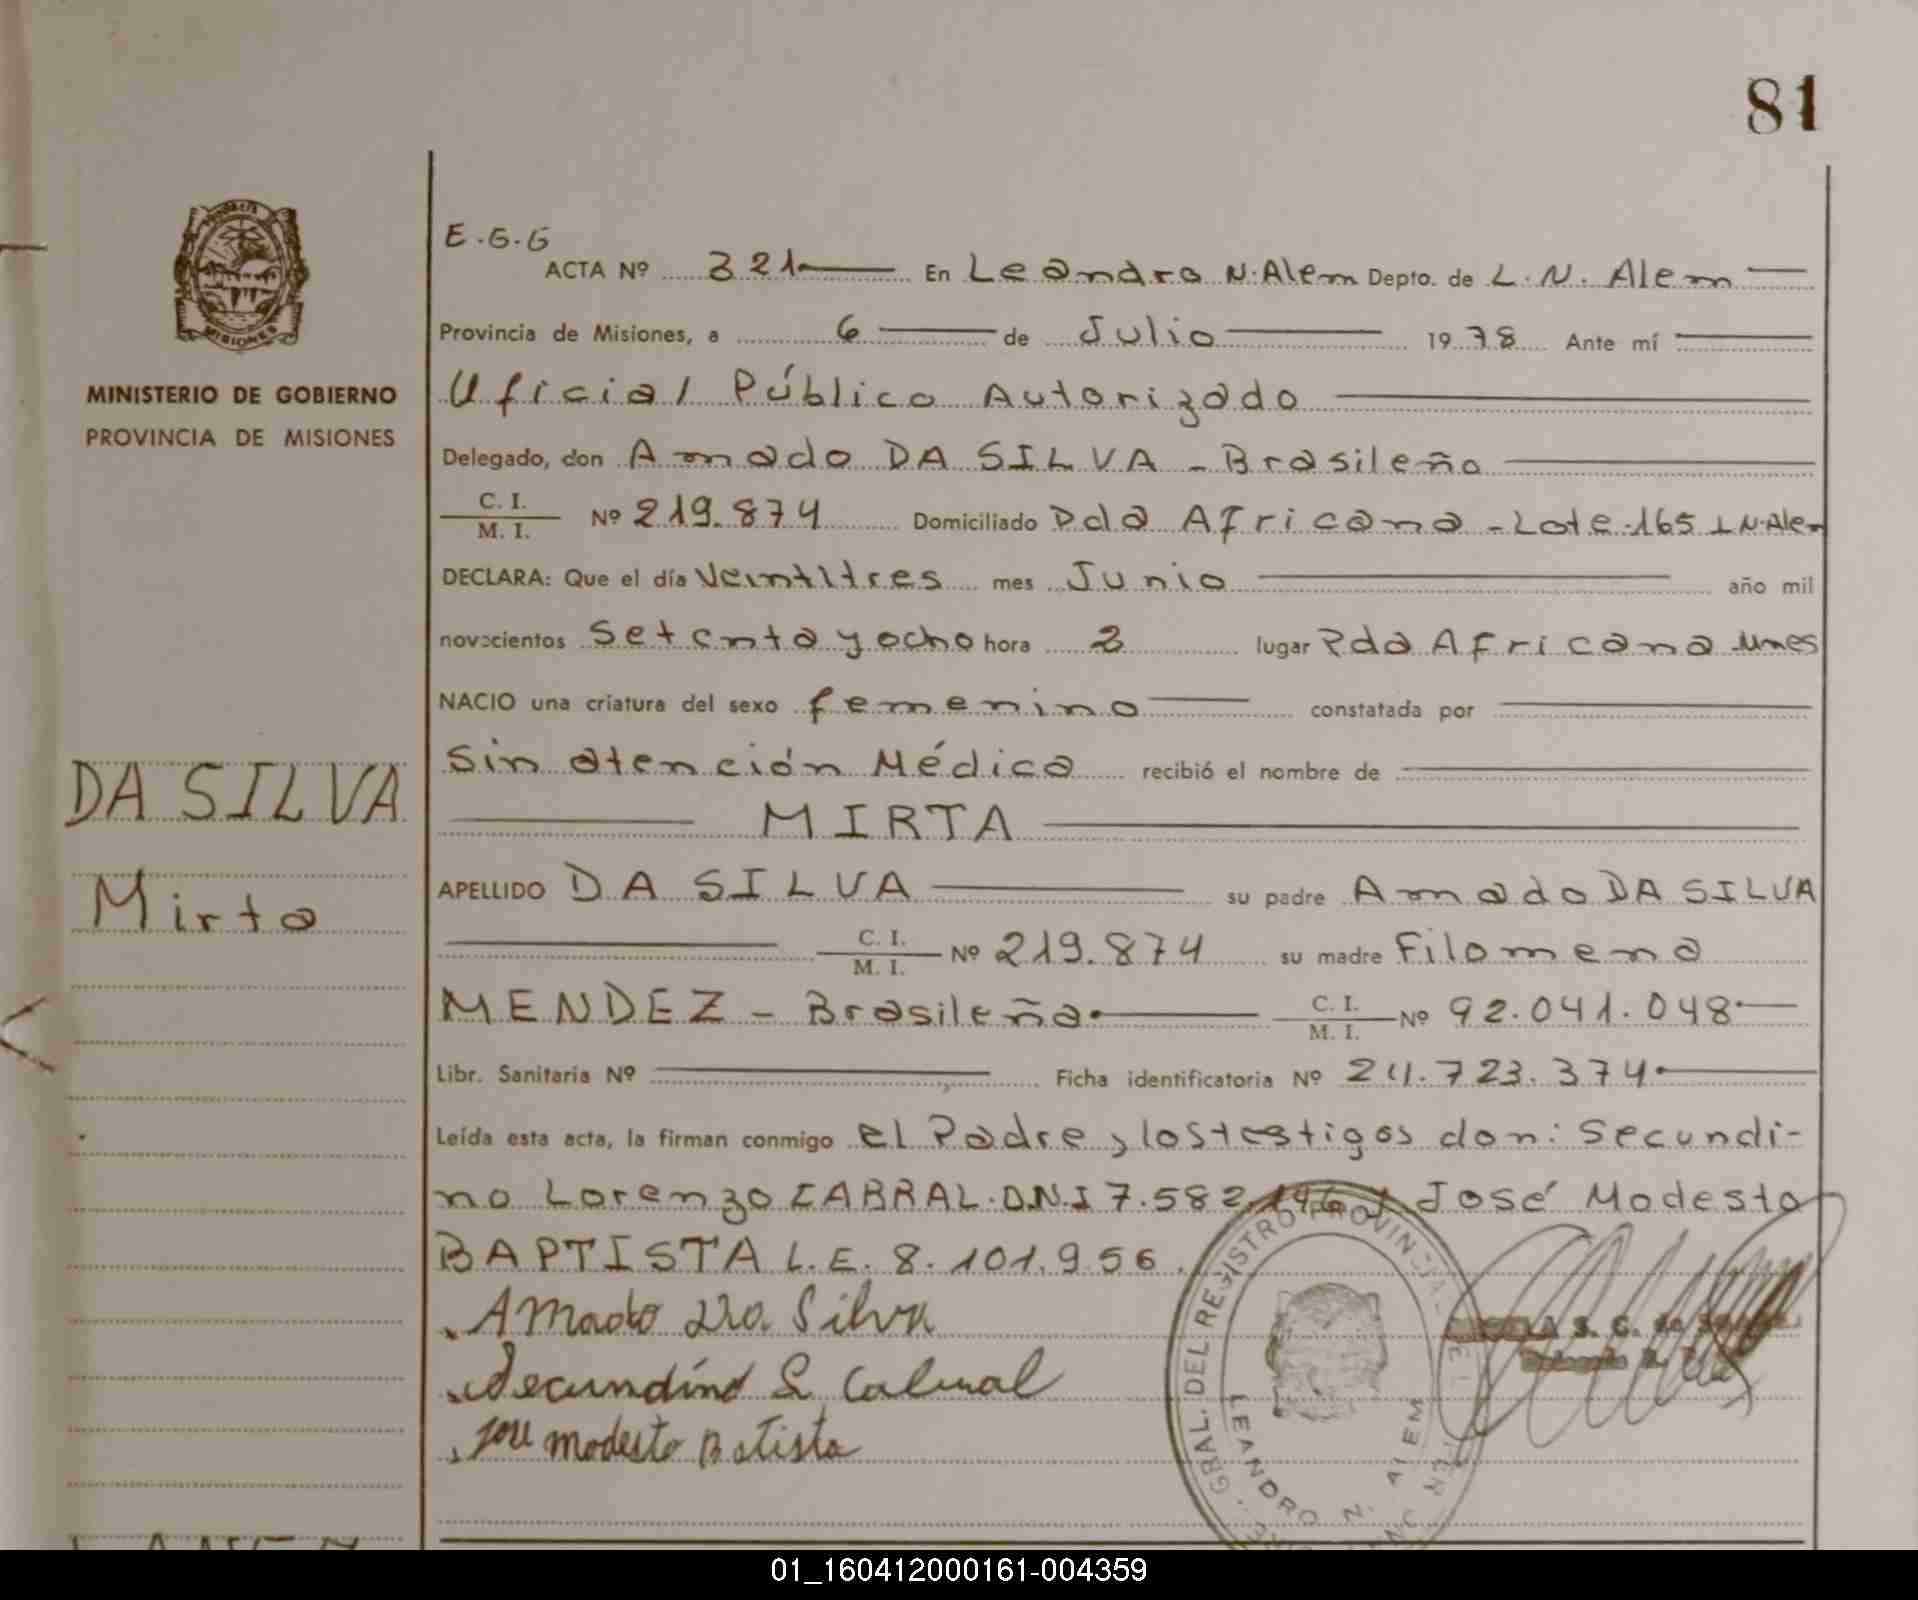 81
E.G.G
ACTA Nº 321 En Leandro N. Alem Depto. de L. N. Alem
Provincia de Misiones, a 6 de Julio 1978 Ante mí
MINISTERIO DE GOBIERNO
PROVINCIA DE MISIONES
Oficial Público Autorizado
Delegado, don Amado DA SILVA - Brasileño
C. I.
M. I. Nº 219.874 Domiciliado Pda Africana - Lote 165 L N. Alem
DECLARA: Que el día Veintitres mes Junio año mil
novecientos Setenta y ocho hora 2 lugar Pda Africana Mnes
NACIO una criatura del sexo femenino constatada por
sin atención Médica recibió el nombre de
DA SILVA
MIRTA
Mirta
APELLIDO DA SILVA su padre Amado DA SILVA
C. I.
M. I. Nº 219.874 su madre Filomena
MENDEZ - Brasileña C. I.
M. I. Nº 92.041.048
Libr. Sanitaria Nº Ficha identificatoria Nº 24.723.374
Leída esta acta, la firman conmigo el Padre y los testigos don: Secundi-
no Lorenzo CABRAL. D.N.I 7.582.146 y José Modesto
BAPTISTA L.E. 8.101.956.
Amado Da Silva
Secundino L Cabral
José modesto Batista
GRAL. DEL REGISTRO PROVINCIAL
LEANDRO N. ALEM
01_160412000161-004359